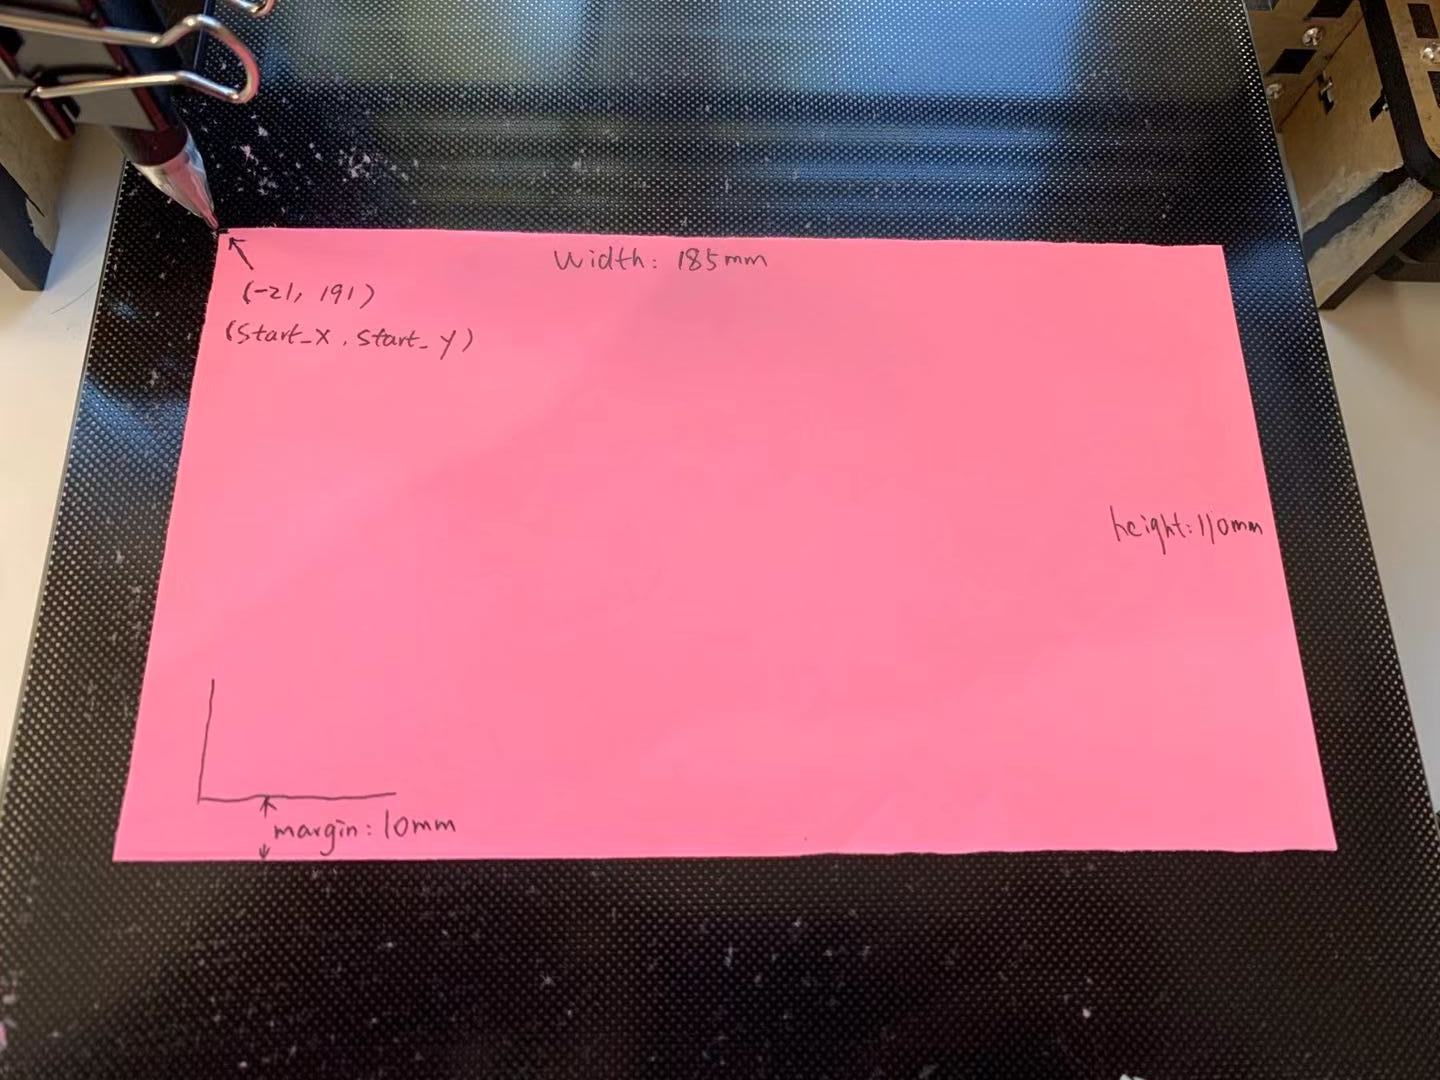 Width: 185mm
(-21, 191)
(Start_x, start_y)
height: 110mm
margin: 10mm